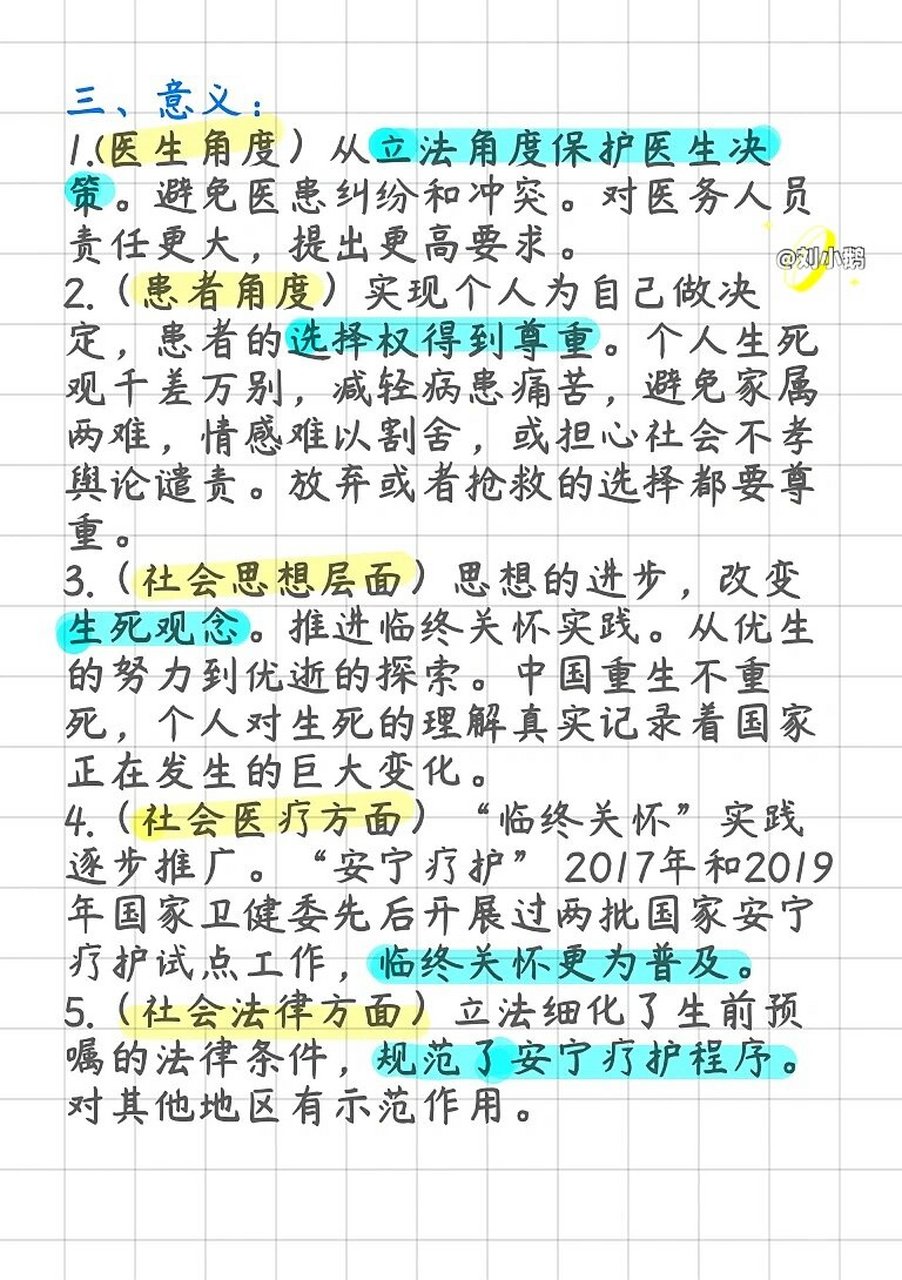 三、意义：
1.(医生角度）从立法角度保护医生决
策。避免医患纠纷和冲突。对医务人员
责任更大，提出更高要求。
@刘小鹅
2.（患者角度）实现个人为自己做决
定，患者的选择权得到尊重。个人生死
观千差万别，减轻病患痛苦，避免家属
两难，情感难以割舍，或担心社会不孝
舆论谴责。放弃或者抢救的选择都要尊
重。
3.（社会思想层面）思想的进步，改变
生死观念。推进临终关怀实践。从优生
的努力到优逝的探索。中国重生不重
死，个人对生死的理解真实记录着国家
正在发生的巨大变化。
4.（社会医疗方面）“临终关怀”实践
逐步推广。“安宁疗护” 2017年和2019
年国家卫健委先后开展过两批国家安宁
疗护试点工作，临终关怀更为普及。
5.（社会法律方面）立法细化了生前预
嘱的法律条件，规范了安宁疗护程序。
对其他地区有示范作用。